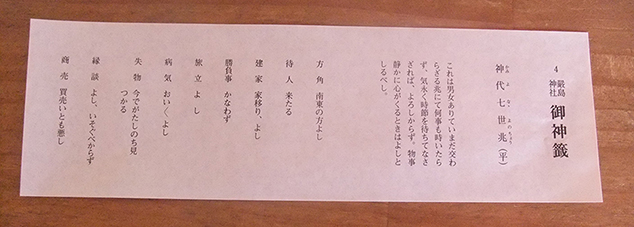 4 嚴島神社 御神籤
神代七世兆(平)
かみよななよのちょう
これは男女ありていまだ交わ
らざる兆にて何事も時いたら
ず。気永く時節を待ちてなさ
ざれば、よろしからず。物事
静かに心がくるときはよしと
しるべし。
方角 南東の方よし
待人 来たる
建家 家移り、よし
勝負事 かなわず
旅立 よし
病気 おい〱よし
失物 今でがたしのち見
つかる
縁談 よし、いそぐべからず
商売 買売いとも悪し